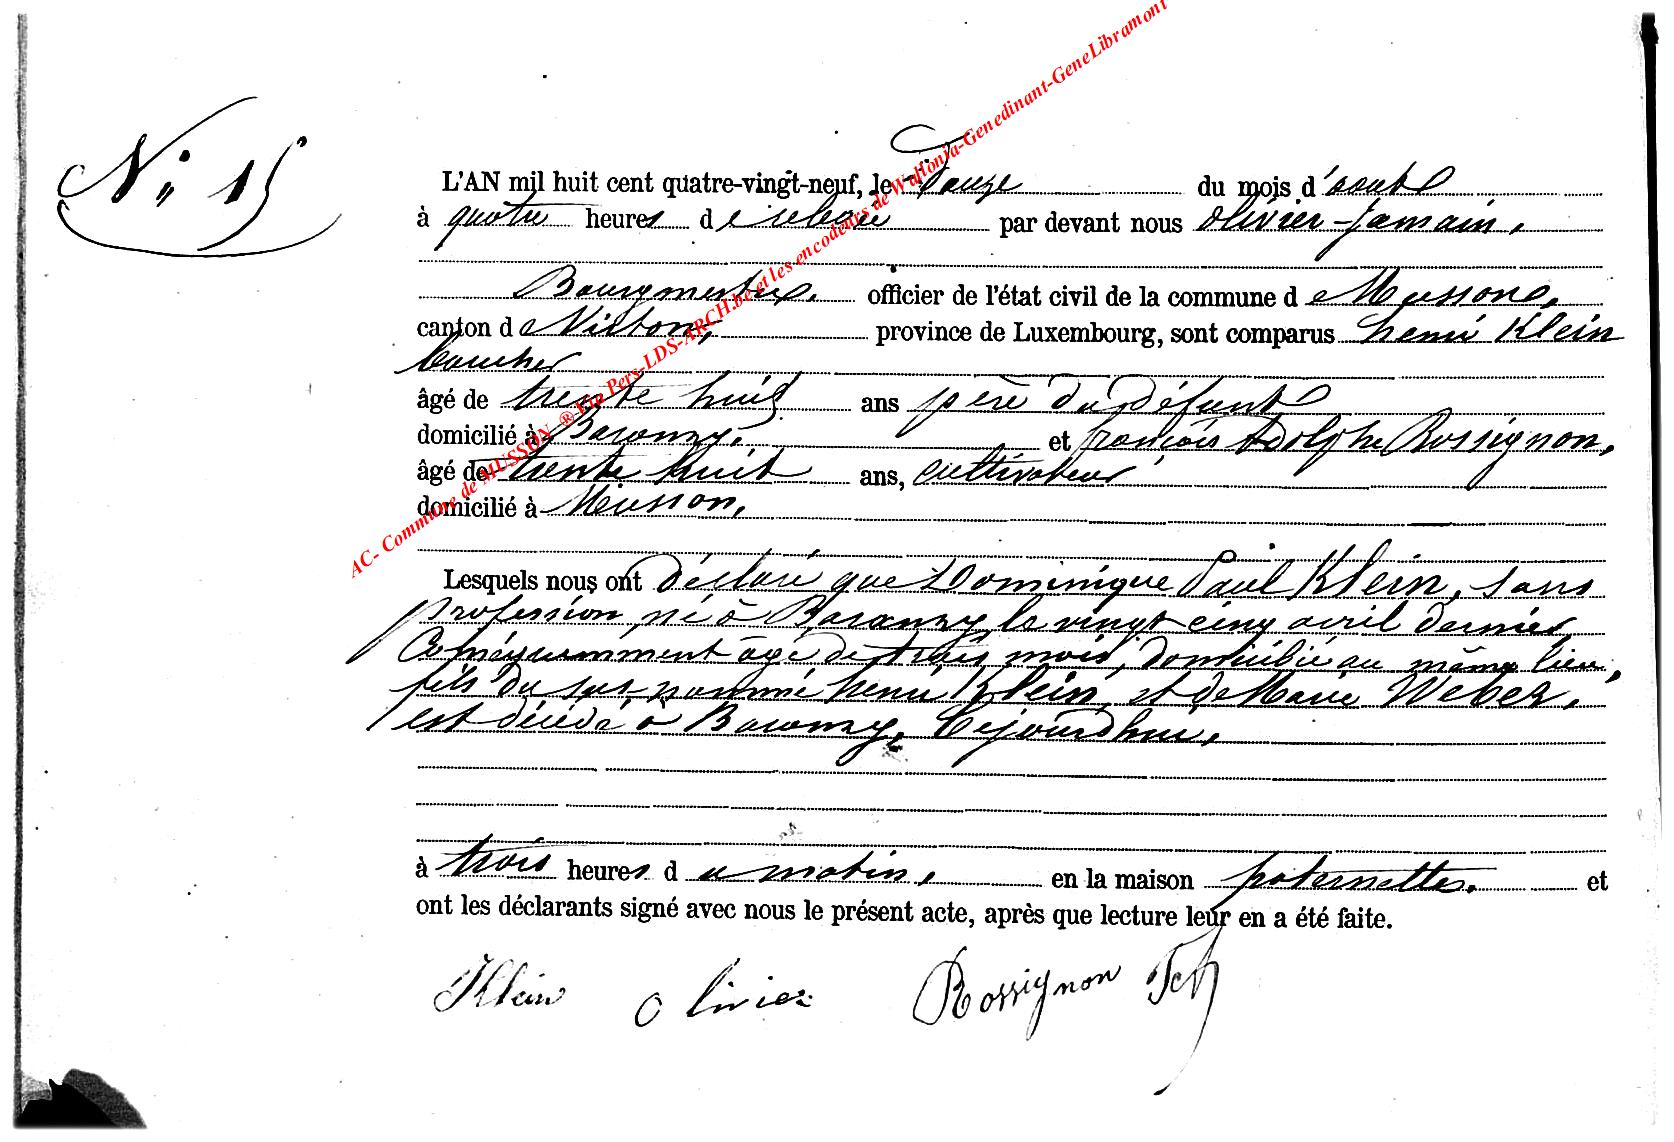 N° 15
L'AN mil huit cent quatre-vingt-neuf, le douze du mois d'août
à quatre heures de relevée par devant nous Olivier-Jamain,
Bourgmestre, officier de l'état civil de la commune de Musson,
canton de Virton, province de Luxembourg, sont comparus henri Klein
boucher
âgé de trente huit ans père du défunt
domicilié à Baranzy, et françois Adolphe Rossignon,
âgé de trente huit ans, cultivateur
domicilié à Musson,
Lesquels nous ont déclaré que Dominique Paul Klein, sans
profession, né à Baranzy, le vingt cinq avril dernier
Conséquemment âgé de trois mois, domicilié au même lieu,
fils du sus-nommé henri Klein, et de Marie Weber,
est décédé à Baranzy, Cejourdhui,
à trois heures du matin, en la maison paternelle, et
ont les déclarants signé avec nous le présent acte, après que lecture leur en a été faite.
Klein Olivier Rossignon
AC- Commune de MUSSON ® Via Pers-LDS-ARCH.be et les encodeurs de Wallonia-Genedinant-GeneLibramont